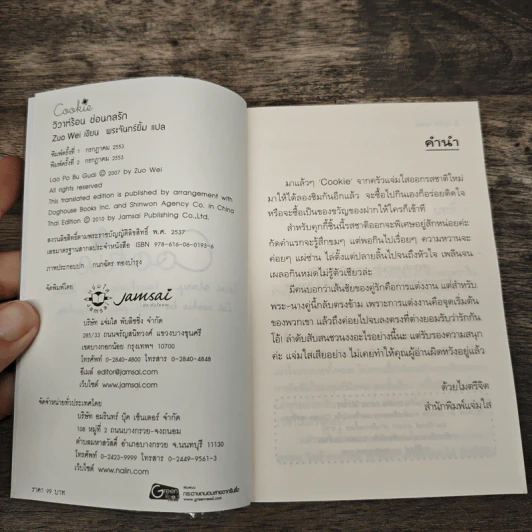 Cookie
วิวาห์ร้อน ซ่อนกลรัก
Zuo Wei เขียน พระจันทร์ยิ้ม แปล
พิมพ์ครั้งที่ 1 กรกฎาคม 2553
พิมพ์ครั้งที่ 2 กรกฎาคม 2553
Lao Po Bu Guai © 2007 by Zuo Wei
All rights reserved
This translated edition is published by arrangement with
Doghouse Books Inc. and Shinwon Agency Co. in China
Thai Edition © 2010 by Jamsai Publishing Co.,Ltd.
สงวนลิขสิทธิ์ตามพระราชบัญญัติลิขสิทธิ์ พ.ศ. 2537
เลขมาตรฐานสากลประจำหนังสือ ISBN 978-616-06-0193-6
ภาพประกอบปก กนกฉัตร ทองบำรุง
จัดพิมพ์โดย
Jamsai
บริษัท แจ่มใส พับลิชชิ่ง จำกัด
285/33 ถนนจรัญสนิทวงศ์ แขวงบางขุนศรี
เขตบางกอกน้อย กรุงเทพฯ 10700
โทรศัพท์ 0-2840-4800 โทรสาร 0-2840-4848
อีเมล์ editor@jamsai.com
เว็บไซต์ www.jamsai.com
จัดจำหน่ายทั่วประเทศโดย
บริษัท อมรินทร์ บุ๊ค เซ็นเตอร์ จำกัด
108 หมู่ที่ 2 ถนนบางกรวย-จงถนอม
ตำบลมหาสวัสดิ์ อำเภอบางกรวย จ.นนทบุรี 11130
โทรศัพท์ 0-2423-9999 โทรสาร 0-2449-9561-3
เว็บไซต์ www.naiin.com
ราคา 99 บาท
Green
กระดาษถนอมสายตากรีนรี้ด
คำนำ
มาแล้วๆ 'Cookie' จากครัวแจ่มใสออกรสชาติใหม่
มาให้ได้ลองชิมกันอีกแล้ว จะซื้อไปกินเองก็อร่อยติดใจ
หรือจะซื้อเป็นของขวัญของฝากให้ใครก็เข้าที
สำหรับคุกกี้ชิ้นนี้รสชาติออกจะพิเศษอยู่สักหน่อยค่ะ
กัดคำแรกจะรู้สึกขมๆ แต่พอกินไปเรื่อยๆ ความหวานจะ
ค่อยๆ แผ่ซ่าน ไล่ตั้งแต่ปลายลิ้นไปจนถึงหัวใจ เพลินจน
เผลอกินหมดไม่รู้ตัวเชียวล่ะ
มีคนบอกว่าเส้นชัยของคู่รักคือการแต่งงาน แต่สำหรับ
พระ-นางคู่นี้กลับตรงข้าม เพราะการแต่งงานคือจุดเริ่มต้น
ของพวกเขา แล้วถึงค่อยไปจบลงตรงที่ต่างยอมรับว่ารักกัน
โอ๊ะ! ลำดับสับสนชวนงงอะไรอย่างนี้นะ แต่รับรองความสนุก
ค่ะ แจ่มใสเสียอย่าง ไม่เคยทำให้คุณผู้อ่านผิดหวังอยู่แล้ว
ด้วยไมตรีจิต
สำนักพิมพ์แจ่มใส